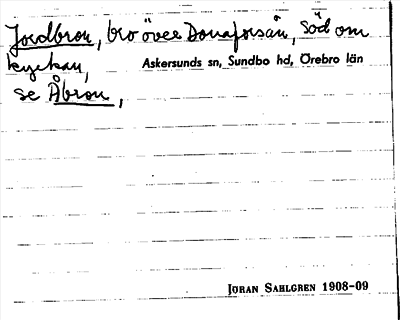 Jordbron, bro över Donaforsån, söd om
kyrkan,
Askersunds sn, Sundbo hd, Örebro län
se Åbron,
JÖRAN SAHLGREN 1908-09